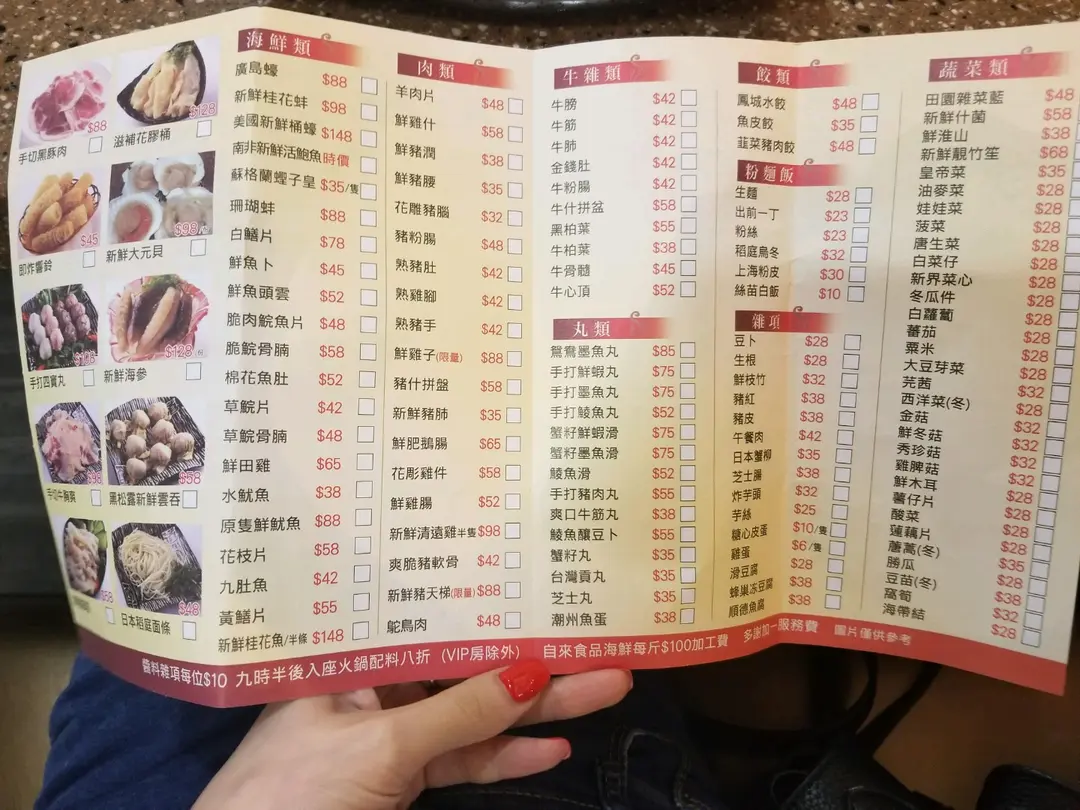 $88
手切黑豚肉
$128
滋補花膠桶
$45
即炸響鈴
$98/份
新鮮大元貝
手打四寶丸
$128/份
新鮮海參
$98
手切牛胸爽
$58
黑松露新鮮雲吞
$58
$48
日本稻庭面條
海鮮類
廣島蠔 $88
新鮮桂花蚌 $98
美國新鮮桶蠔 $148
南非新鮮活鮑魚 時價
蘇格蘭蟶子皇 $35/隻
珊瑚蚌 $88
白鱔片 $78
鮮魚卜 $45
鮮魚頭雲 $52
脆肉鯇魚片 $48
脆鯇骨腩 $58
棉花魚肚 $52
草鯇片 $42
草鯇骨腩 $48
鮮田雞 $65
水魷魚 $38
原隻鮮魷魚 $88
花枝片 $58
九肚魚 $42
黃鱔片 $55
新鮮桂花魚/半條 $148
肉類
羊肉片 $48
鮮雞什 $58
鮮豬潤 $38
鮮豬腰 $35
花雕豬腦 $32
豬粉腸 $48
熟豬肚 $42
熟雞腳 $42
熟豬手 $42
鮮雞子(限量) $88
豬什拼盤 $58
新鮮豬肺 $35
鮮肥鵝腸 $65
花彫雞件 $58
鮮雞腸 $52
新鮮清遠雞半隻 $98
爽脆豬軟骨 $42
新鮮豬天梯(限量) $88
鴕鳥肉 $48
牛雜類
牛膀 $42
牛筋 $42
牛肺 $42
金錢肚 $42
牛粉腸 $42
牛什拼盆 $58
黑柏葉 $55
牛柏葉 $38
牛骨髓 $45
牛心頂 $52
丸類
鴛鴦墨魚丸 $85
手打鮮蝦丸 $75
手打墨魚丸 $75
手打鯪魚丸 $52
蟹籽鮮蝦滑 $75
蟹籽墨魚滑 $75
鯪魚滑 $52
手打豬肉丸 $55
爽口牛筋丸 $38
鯪魚釀豆卜 $55
蟹籽丸 $35
台灣貢丸 $35
芝士丸 $35
潮州魚蛋 $38
餃類
鳳城水餃 $48
魚皮餃 $35
韮菜豬肉餃 $48
粉麵飯
生麵 $28
出前一丁 $23
粉絲 $23
稻庭烏冬 $32
上海粉皮 $30
絲苗白飯 $10
雜項
豆卜 $28
生根 $28
鮮枝竹 $32
豬紅 $38
豬皮 $38
午餐肉 $42
日本蟹柳 $35
芝士腸 $38
炸芋頭 $32
芋絲 $25
糖心皮蛋 $10/隻
雞蛋 $6/隻
滑豆腐 $28
蜂巢凍豆腐 $38
順德魚腐 $38
蔬菜類
田園雜菜籃 $48
新鮮什菌 $58
鮮淮山 $38
新鮮靚竹笙 $68
皇帝菜 $35
油麥菜 $28
娃娃菜 $28
菠菜 $28
唐生菜 $28
白菜仔 $28
新界菜心 $28
冬瓜件 $28
白蘿蔔 $28
蕃茄 $28
粟米 $28
大豆芽菜 $28
芫茜 $28
西洋菜(冬) $28
金菇 $28
鮮冬菇 $32
秀珍菇 $32
雞脾菇 $32
鮮木耳 $32
薯仔片 $28
酸菜 $28
蓮藕片 $28
茼蒿(冬) $28
勝瓜 $35
豆苗(冬) $28
窩筍 $32
海帶結 $28
醬料雜項每位$10 九時半後入座火鍋配料八折 (VIP房除外) 自來食品海鮮每斤$100加工費 多謝加一服務費 圖片僅供參考